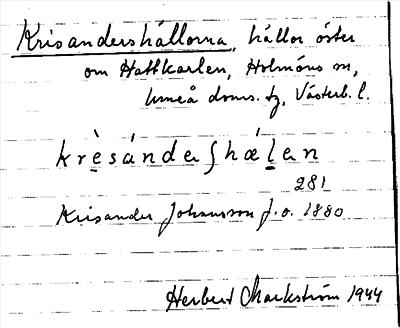 Krisandershällorna, hällor öster
om Hattkarlen, Holmöns sn,
Umeå doms. tg, Västerb. l.
krèsándeʃhælan
281
Krisander Johansson f. o. 1880
Herbert Markström 1944